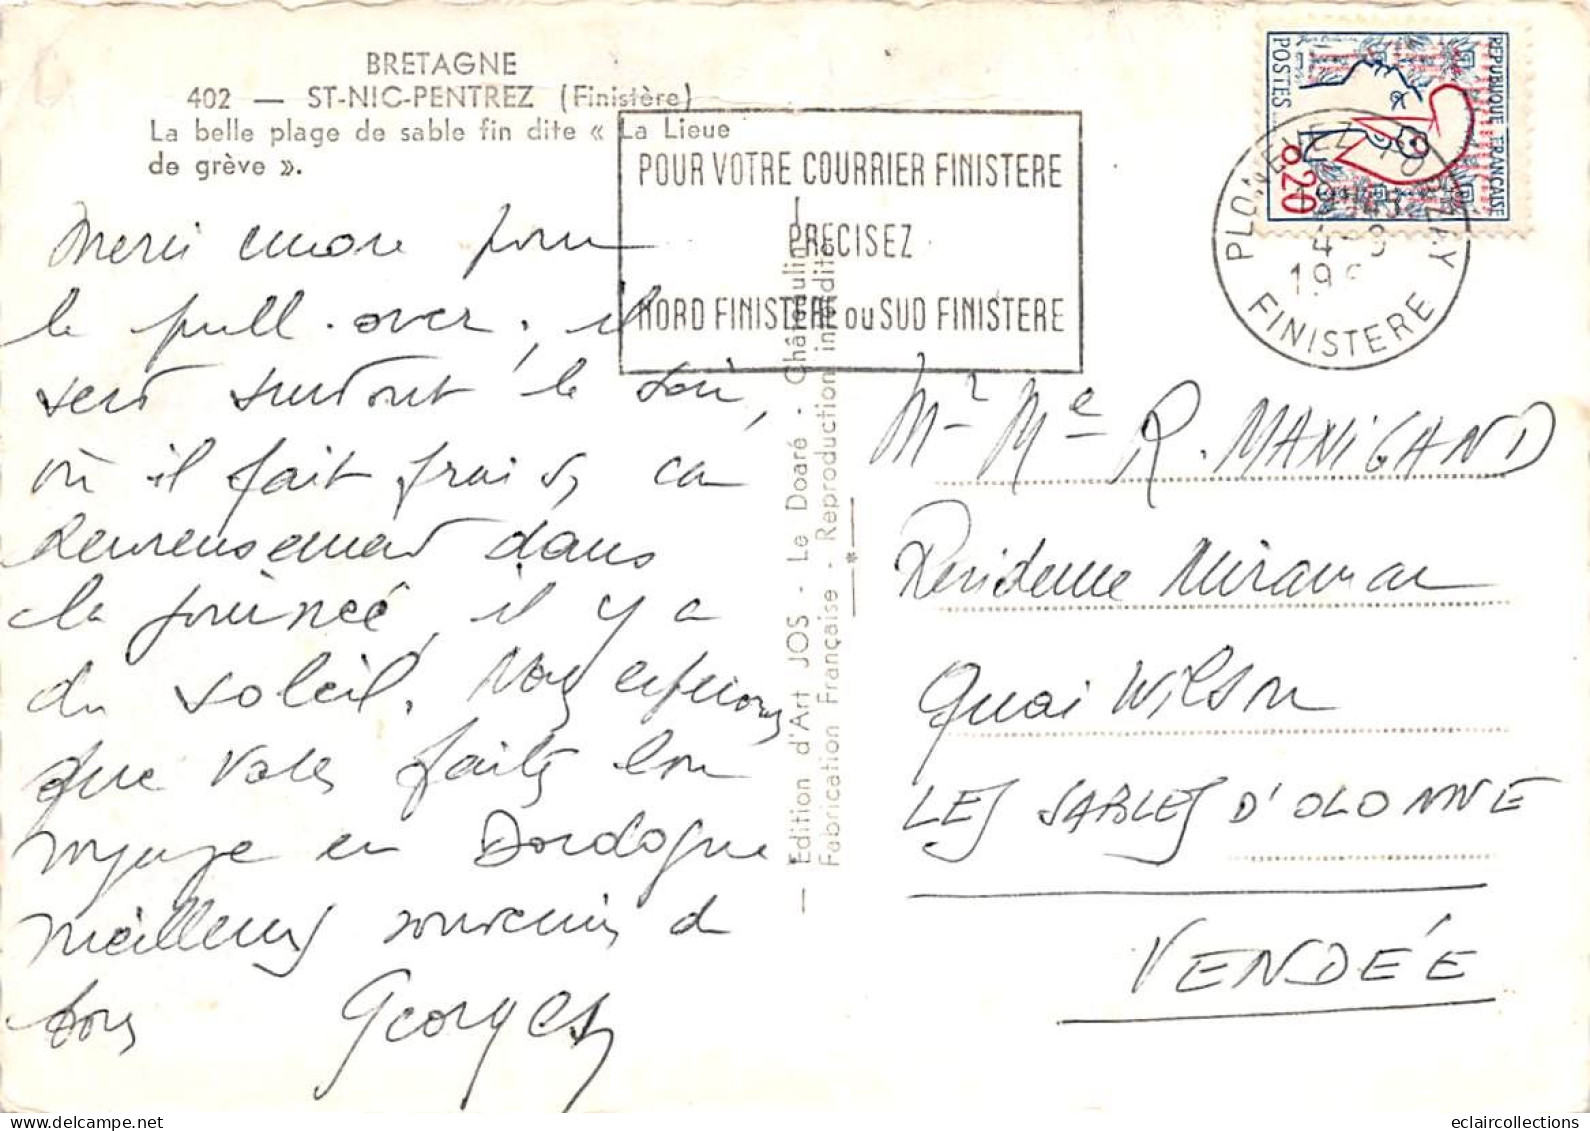 BRETAGNE
402 — ST-NIC-PENTREZ (Finistère)
La belle plage de sable fin dite « La Lieue
de grève ».
Merci encore pour
le pull-over, il
sert surtout le soir,
où il fait frais, car
heureusement dans
la journée, il y a
du soleil. Nous espérons
que vous faites bon
voyage en Dordogne
meilleurs souvenirs de
tous Georges
POUR VOTRE COURRIER FINISTERE
PRECISEZ
NORD FINISTERE ou SUD FINISTERE
— Edition d'Art JOS - Le Doaré - Châteaulin
Fabrication Française - Reproduction interdite
REPUBLIQUE FRANÇAISE
POSTES
0,20
PLONEVEZ PORZAY
4-9
19
FINISTERE
Mr Me R. MANIGAND
Residence Miramar
Quai Wilson
LES SABLES D'OLONNE
VENDÉE
eclaircollections